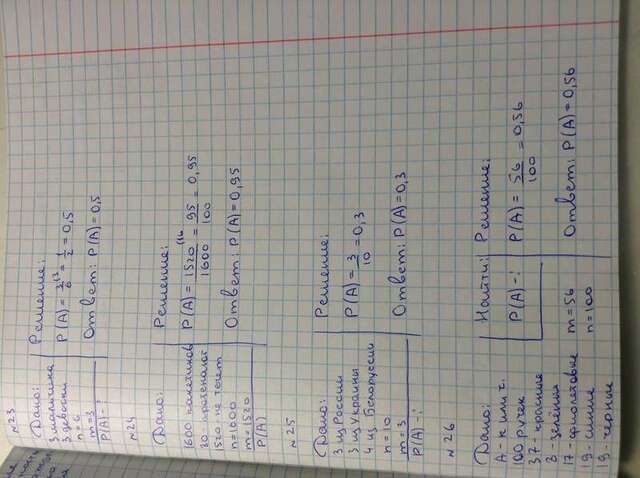 N23
Дано:
3 мальчика
3 девочки
n = 6
m = 3
P(A) - ?
Решение:
P(A) = 3/6 = 1/2 = 0,5
Ответ: P(A) = 0,5
N24
Дано:
1600
80
1520 не течет
n = 1600
m = 1520
P(A)
Решение:
P(A) = 1520/1600 = 95/100 = 0,95
Ответ: P(A) = 0,95
N25
Дано:
3 из России
3 из Украины
4 из Белоруссии
n = 10
m = 3
P(A) - ?
Решение:
P(A) = 3/10 = 0,3
Ответ: P(A) = 0,3
N26
Дано:
A - к или ч.
100 ручек
37 - красные
8 - зелёные
17 - фиолетовые
19 - синие
19 - черные
m = 56
n = 100
Найти:
P(A) - ?
Решение:
P(A) = 56/100 = 0,56
Ответ: P(A) = 0,56